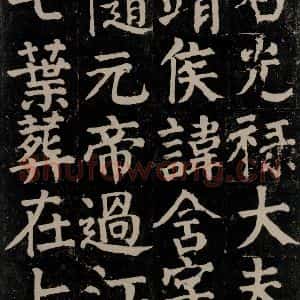 右光禄大夫
靖侯諱含字
隨元帝過江
七葉葬在上
shufawang.cn